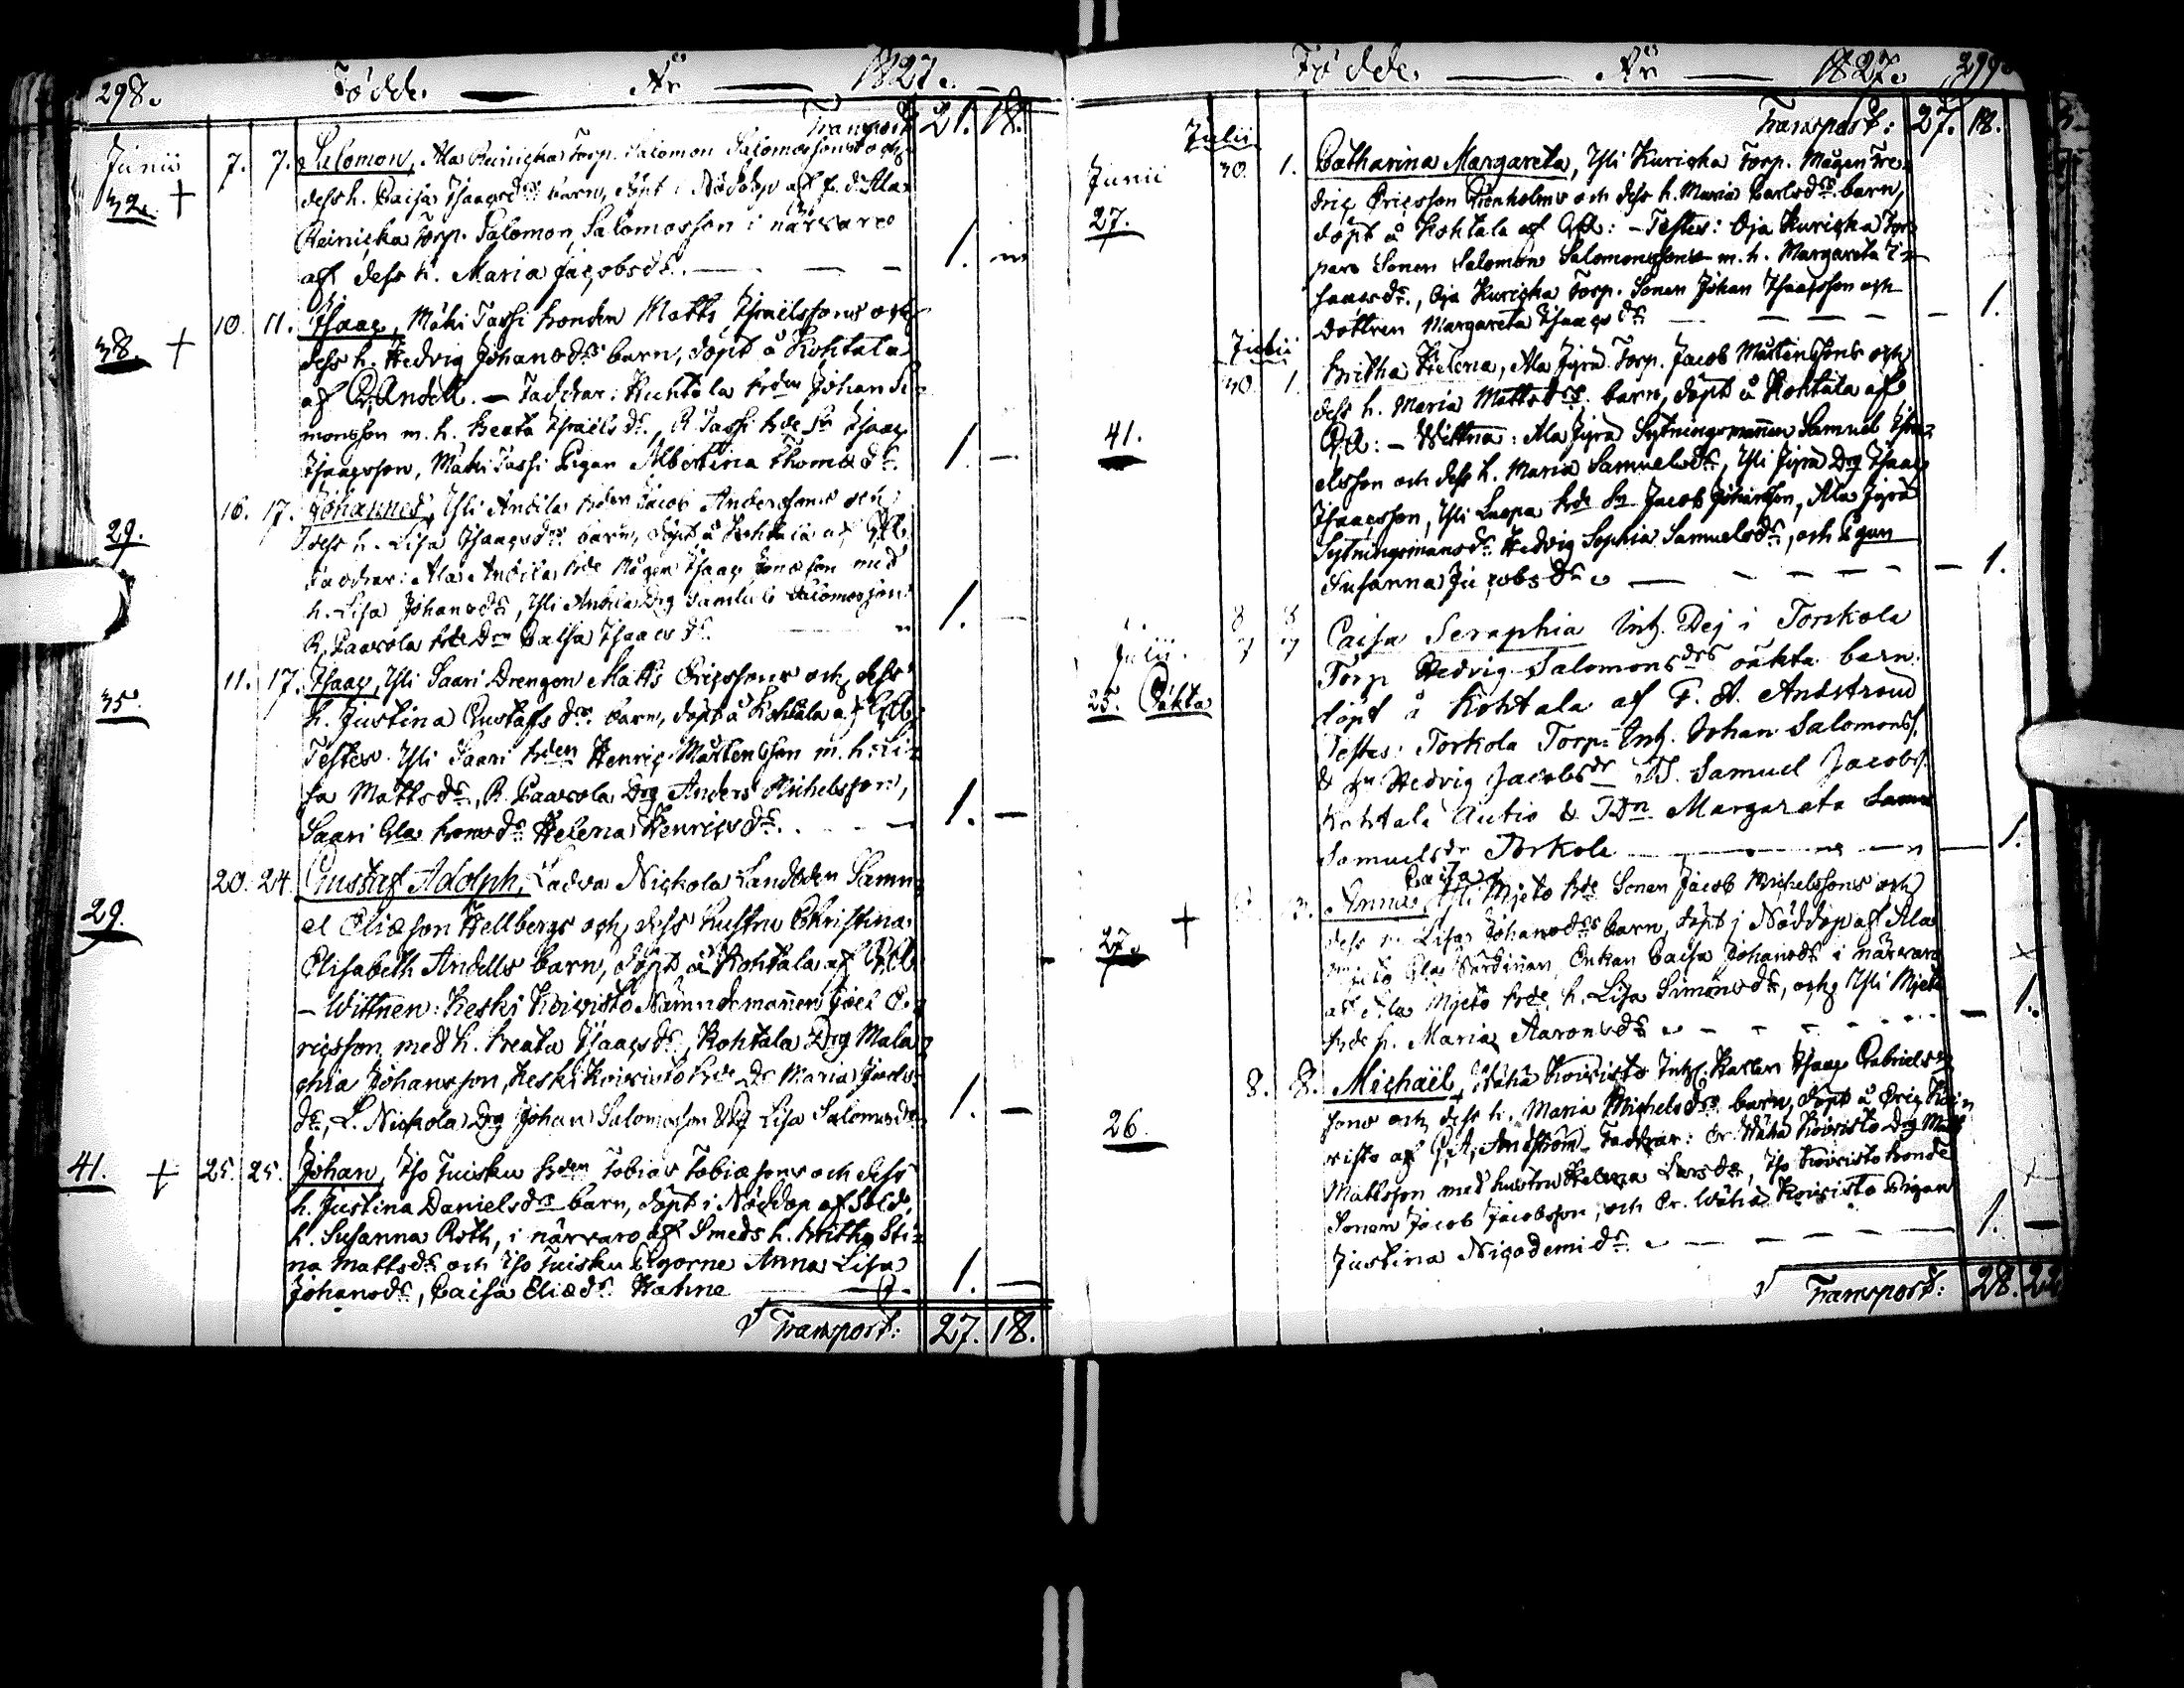 298. Födde. — År — 1827.
Transport 21. 18.
Junii 7. 7. Salomon, Ala Reinicka Torp. Salomon Salomossons och
32. + dess h. Caisa Isaacsdrs barn, döpt i Nöddop af f. d. Ala
Reinicka Torp. Salomon Salomosson i närvaro
af dess h. Maria Jacobsdr. — 1.
10. 11. Isaac, Mäki Jassi bonden Matts Israelssons och
38. + dess h. Hedvig Johansdrs barn, döpt å Kohtala
af C. Andell. — Faddrar: Huhtala bden Johan Si-
monsson m. h. Beata Israelsdr, R. Jassi bde Sn Isaac
Isaacsson, Mäki Jassi Pigan Albertina Thomædr. 1. —
16. 17. Johannes, Yli Anttila bden Jacob Anderssons och
29. dess h. Lisa Isaacsdrs barn, döpt å Kohtala af
Faddrar: Ala Anttila bde Mågen Isaac Jonæson med
h. Lisa Johansdr, Yli Anttila Drg Samuel Salomosson
R. Paavola bde Drn Caisa Isaacsdr. 1. —
11. 17. Isaac, Yli Saari Drengen Matts Ericssons och dess
35. h. Justina Gustafsdrs barn, döpt å Kohtala af
Testes: Yli Saari bden Henric Mårtensson m. h. Li-
sa Mattsdr, R. Paavola Drg Anders Michelsson,
Saari Gla bonsdr Helena Henricsdr. 1. —
20. 24. Gustaf Adolph, Ladva Nickola Landbden Samu-
29. el Eliæson Hellbergs och dess hustru Christina
Elisabeth Andells barn, döpt å Kohtala af
— Wittnen: Keski Koivisto Nämndemannen Joel E-
ricsson med h. Beata Isaacsdr, Kohtala Drg Mala-
chia Johansson, Keski Koivisto bde Dr Maria Joels-
dr, L. Nickola Drg Johan Salomosson Lisa Salomosdr 1. —
41. + 25. 25. Johan, Iso Tuisku bden Tobias Tobiæsons och dess
h. Justina Danielsdrs barn, döpt i Nöddop af Sold.
h. Susanna Roth, i närvaro af Smeds h. Britha Sti-
na Mattsdr och Iso Tuisku Pigorne Anna Lisa
Johansdr, Caisa Eliædr Hahne — 1. —
Transport: 27. 18.
Födde. — År — 1827. 299.
Transport: 27. 18.
Julii
Junii 30. 1. Catharina Margareta, Yli Kuricka Torp. Mågen Fre-
dric Ericsson Grönholms och dess h. Maria Carlsdrs barn,
27. döpt å Kohtala af — Testes: Oja Kuricka Tor-
pare Sonen Salomon Salomonsson m. h. Margareta I-
saacsdr, Oja Kuricka Torp. Sonen Johan Isaacsson och
Dottren Margareta Isaacsdr — 1.
Julii
30. 1. Britha Helena, Ala Jyrä Torp. Jacob Mårtenssons och
dess h. Maria Mattsdrs barn, döpt å Kohtala af
41. — Wittna: Ala Jyrä Sytningsmannen Samuel Isra-
elsson och dess h. Maria Samuelsdr, Yli Jyrä Drg Isaac
Isaacsson, Yli Luopa bde Sn Jacob Johansson, Ala Jyrä
Sytningsmansdr Hedvig Sophia Samuelsdr, och Pigan
Susanna Jacobsdr — 1.
Julii. Caisa Seraphia Inh. Dej i Torkola
Torp Hedvig Salomonsdrs oäkta barn.
25. Oäkta döpt å Kohtala af F. A. Andström
Testes: Torkola Torp: Inh. Johan Salomonss.
& Hedvig Jacobsdr Samuel Jacobss.
Kohtala Autio & Margareta
Samuelsdr Torkola — 1.
Caisa
+ 3. Anna, Yli Mjeto bde Sonen Jacob Michelssons och
27. dess h. Lisa Johansdrs barn, döpt i Nöddop af Ala
Mjeto Enkan Caisa Johansdr i närvaro
af Ala Mjeto bde h. Lisa Simonsdr, och Yli Mjeto
bde h. Maria Aaronsdr — 1.
8. 8. Michaël, Wähä Koivisto Inh. Karlen Isaac Gabriels-
sons och dess h. Maria Michelsdrs barn, döpt å Eric Koi-
26. visto af Andström — Faddrar: Er. Wähä Koivisto Drg Matts
Mattsson med hustru Helena Larsdr, Iso Koivisto bonde
Sonen Jacob Jacobsson, och Er. Wähä Koivisto Pigan
Justina Nicodemidr — 1. —
Transport: 28. 22